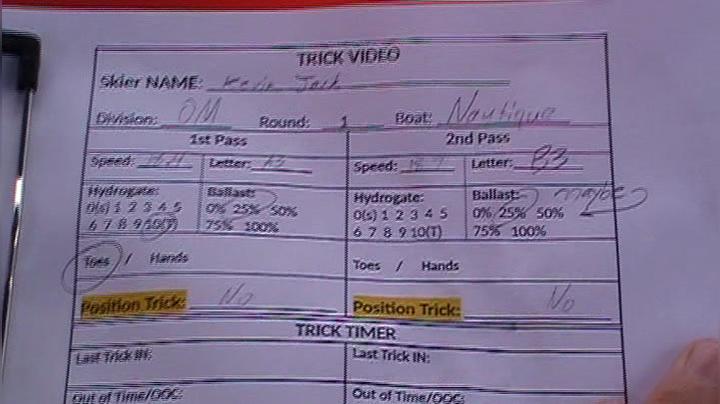 TRICK VIDEO
Skier NAME: Kevin Jack
Division: OM Round: 1 Boat: Nautique
1st Pass 2nd Pass
Speed: Letter: Speed: Letter: B3
Hydrogate: Ballast: Hydrogate: Ballast: maybe
0(s) 1 2 3 4 5 0% 25% 50% 0(s) 1 2 3 4 5 0% 25% 50%
6 7 8 9 10(T) 75% 100% 6 7 8 9 10(T) 75% 100%
Toes / Hands Toes / Hands
Position Trick: No Position Trick: No
TRICK TIMER
Last Trick IN: Last Trick IN:
Out of Time/OOC: Out of Time/OOC: